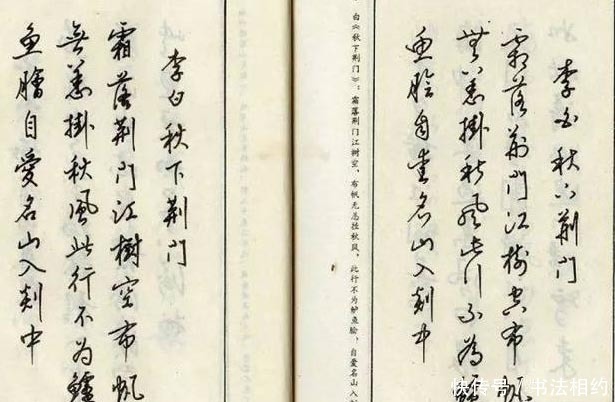 李白秋下荆门
霜落荆门江樹空布帆
無恙掛秋風此行不为鱸
魚膾自愛名山入剡中
白《秋下荆门》：霜落荆门江树空，布帆无恙挂秋风。此行不为鲈鱼脍，自爱名山入剡
李白秋下荆门
霜落荆门江樹空布帆
無恙掛秋風此行不為鱸
魚膾自愛名山入剡中
快传号/书法相约